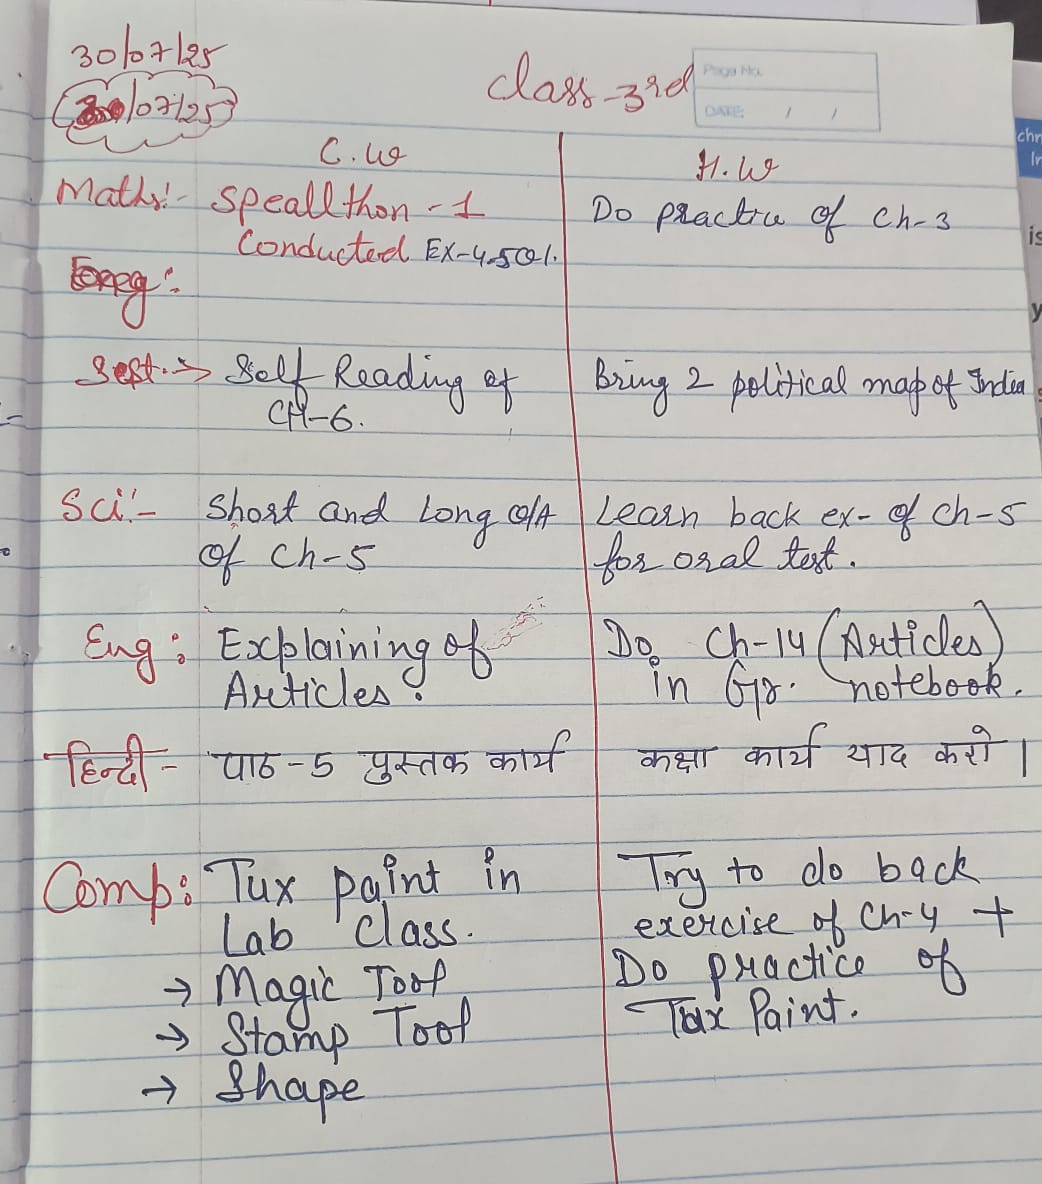 30/07/25
Class-3rd
Page No.
/07/25
DATE: / /
C.W
H.W
Maths:- Speallthon-1
Do practice of Ch-3
Conducted Ex-4.5
Eng:
Sest.→ Self Reading of
Bring 2 political map of India
CH-6.
Sci:- Short and Long Q/A
Learn back ex- of Ch-5
of Ch-5
for oral test.
Eng: Explaining of
Do Ch-14 (Articles)
Articles.
in Gr. notebook.
हिन्दी- पाठ-5 पुस्तक कार्य
कक्षा कार्य याद करो।
Comp: Tux paint in
Try to do back
Lab Class.
exercise of Ch-4 +
→ Magic Tool
Do practice of
→ Stamp Tool
Tux Paint.
→ Shape